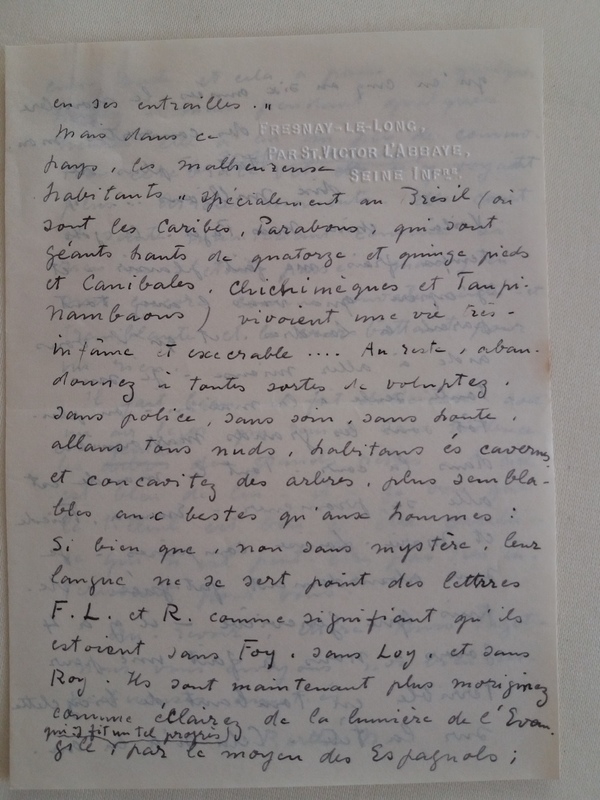 en ses entrailles."
FRESNAY-LE-LONG,
PAR ST VICTOR L'ABBAYE,
SEINE INFRE.
Mais dans ce
pays, les malheureuse
habitants "spécialement au Brésil (où
sont les Caribes, Parabous, qui sont
géants hauts de quatorze et quinze pieds
et Canibales, Chichimèques et Taupi-
nambaous) vivoient une vie très-
infâme et execrable .... Au reste, aban-
donnez à toutes sortes de voluptez,
sans police, sans soin, sans honte,
allans tous nuds, habitans és cavernes
et concavitez des arbres, plus sembla-
bles aux bestes qu'aux hommes :
Si bien que, non sans mystère, leur
langue ne se sert point des lettres
F. L. et R. comme signifiant qu'ils
estoient sans Foy, sans Loy, et sans
Roy. Ils sont maintenant plus moriginez
comme éclairez de la lumière de l'Evan-
qui y fit un tel progrès)
gile (par le moyen des Espagnols ;